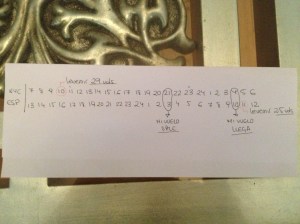 24
NYC 7 8 9 10 11 12 13 14 15 16 17 18 19 20 21 22 23 24 1 2 3 4 5 6
ESP 13 14 15 16 17 18 19 20 21 22 23 24 1 2 3 4 5 6 7 8 9 10 11 12
MI VUELO
SALE
MI VUELO
LLEGA